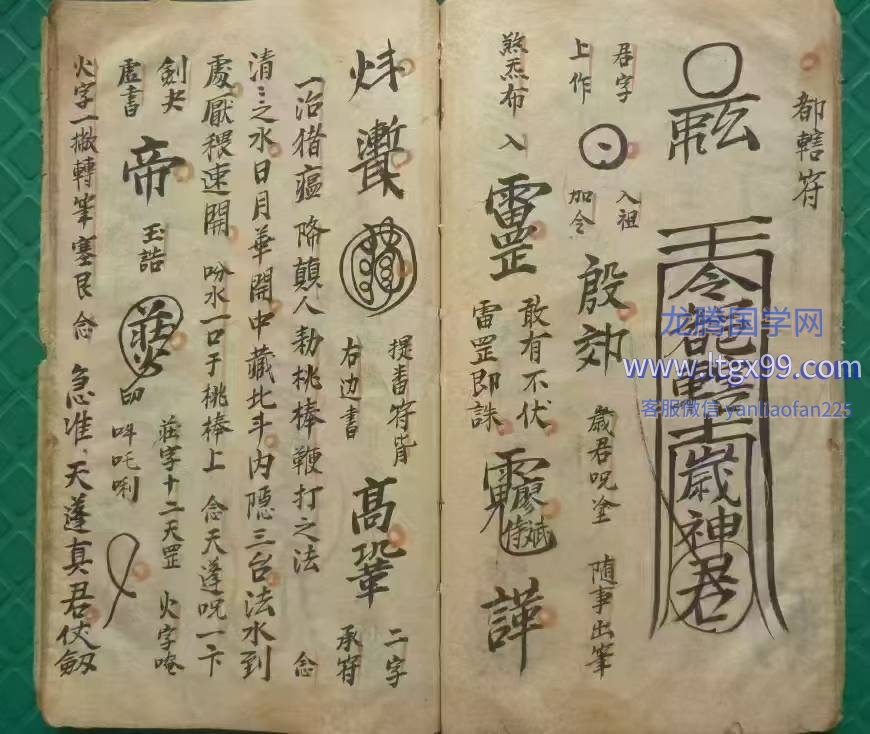 都轄符
令
歲神君
君字
上作
入祖
加令
殷郊
歲君咒塗
隨事出筆
煞炁布
入
雷罡
敢有不伏
雷罡即誅
廖侍斌
提書符背
右边書
高鞏
二字
承符
一治猪瘟
降顛人勑桃棒鞭打之法
念
清〻之水日月華開中藏北斗內隱三台法水到
處厭穢速開
吩水一口于桃棒上
念天蓬咒一卞
劍尖
虛書
帝
玉誥
叩
吽吒唎
莊字十二天罡
火字唵
火字一撇轉筆塞艮
念
急准天蓬真君仗劔
龙腾国学网
www.ltgx99.com
客服微信 yanliaofan225